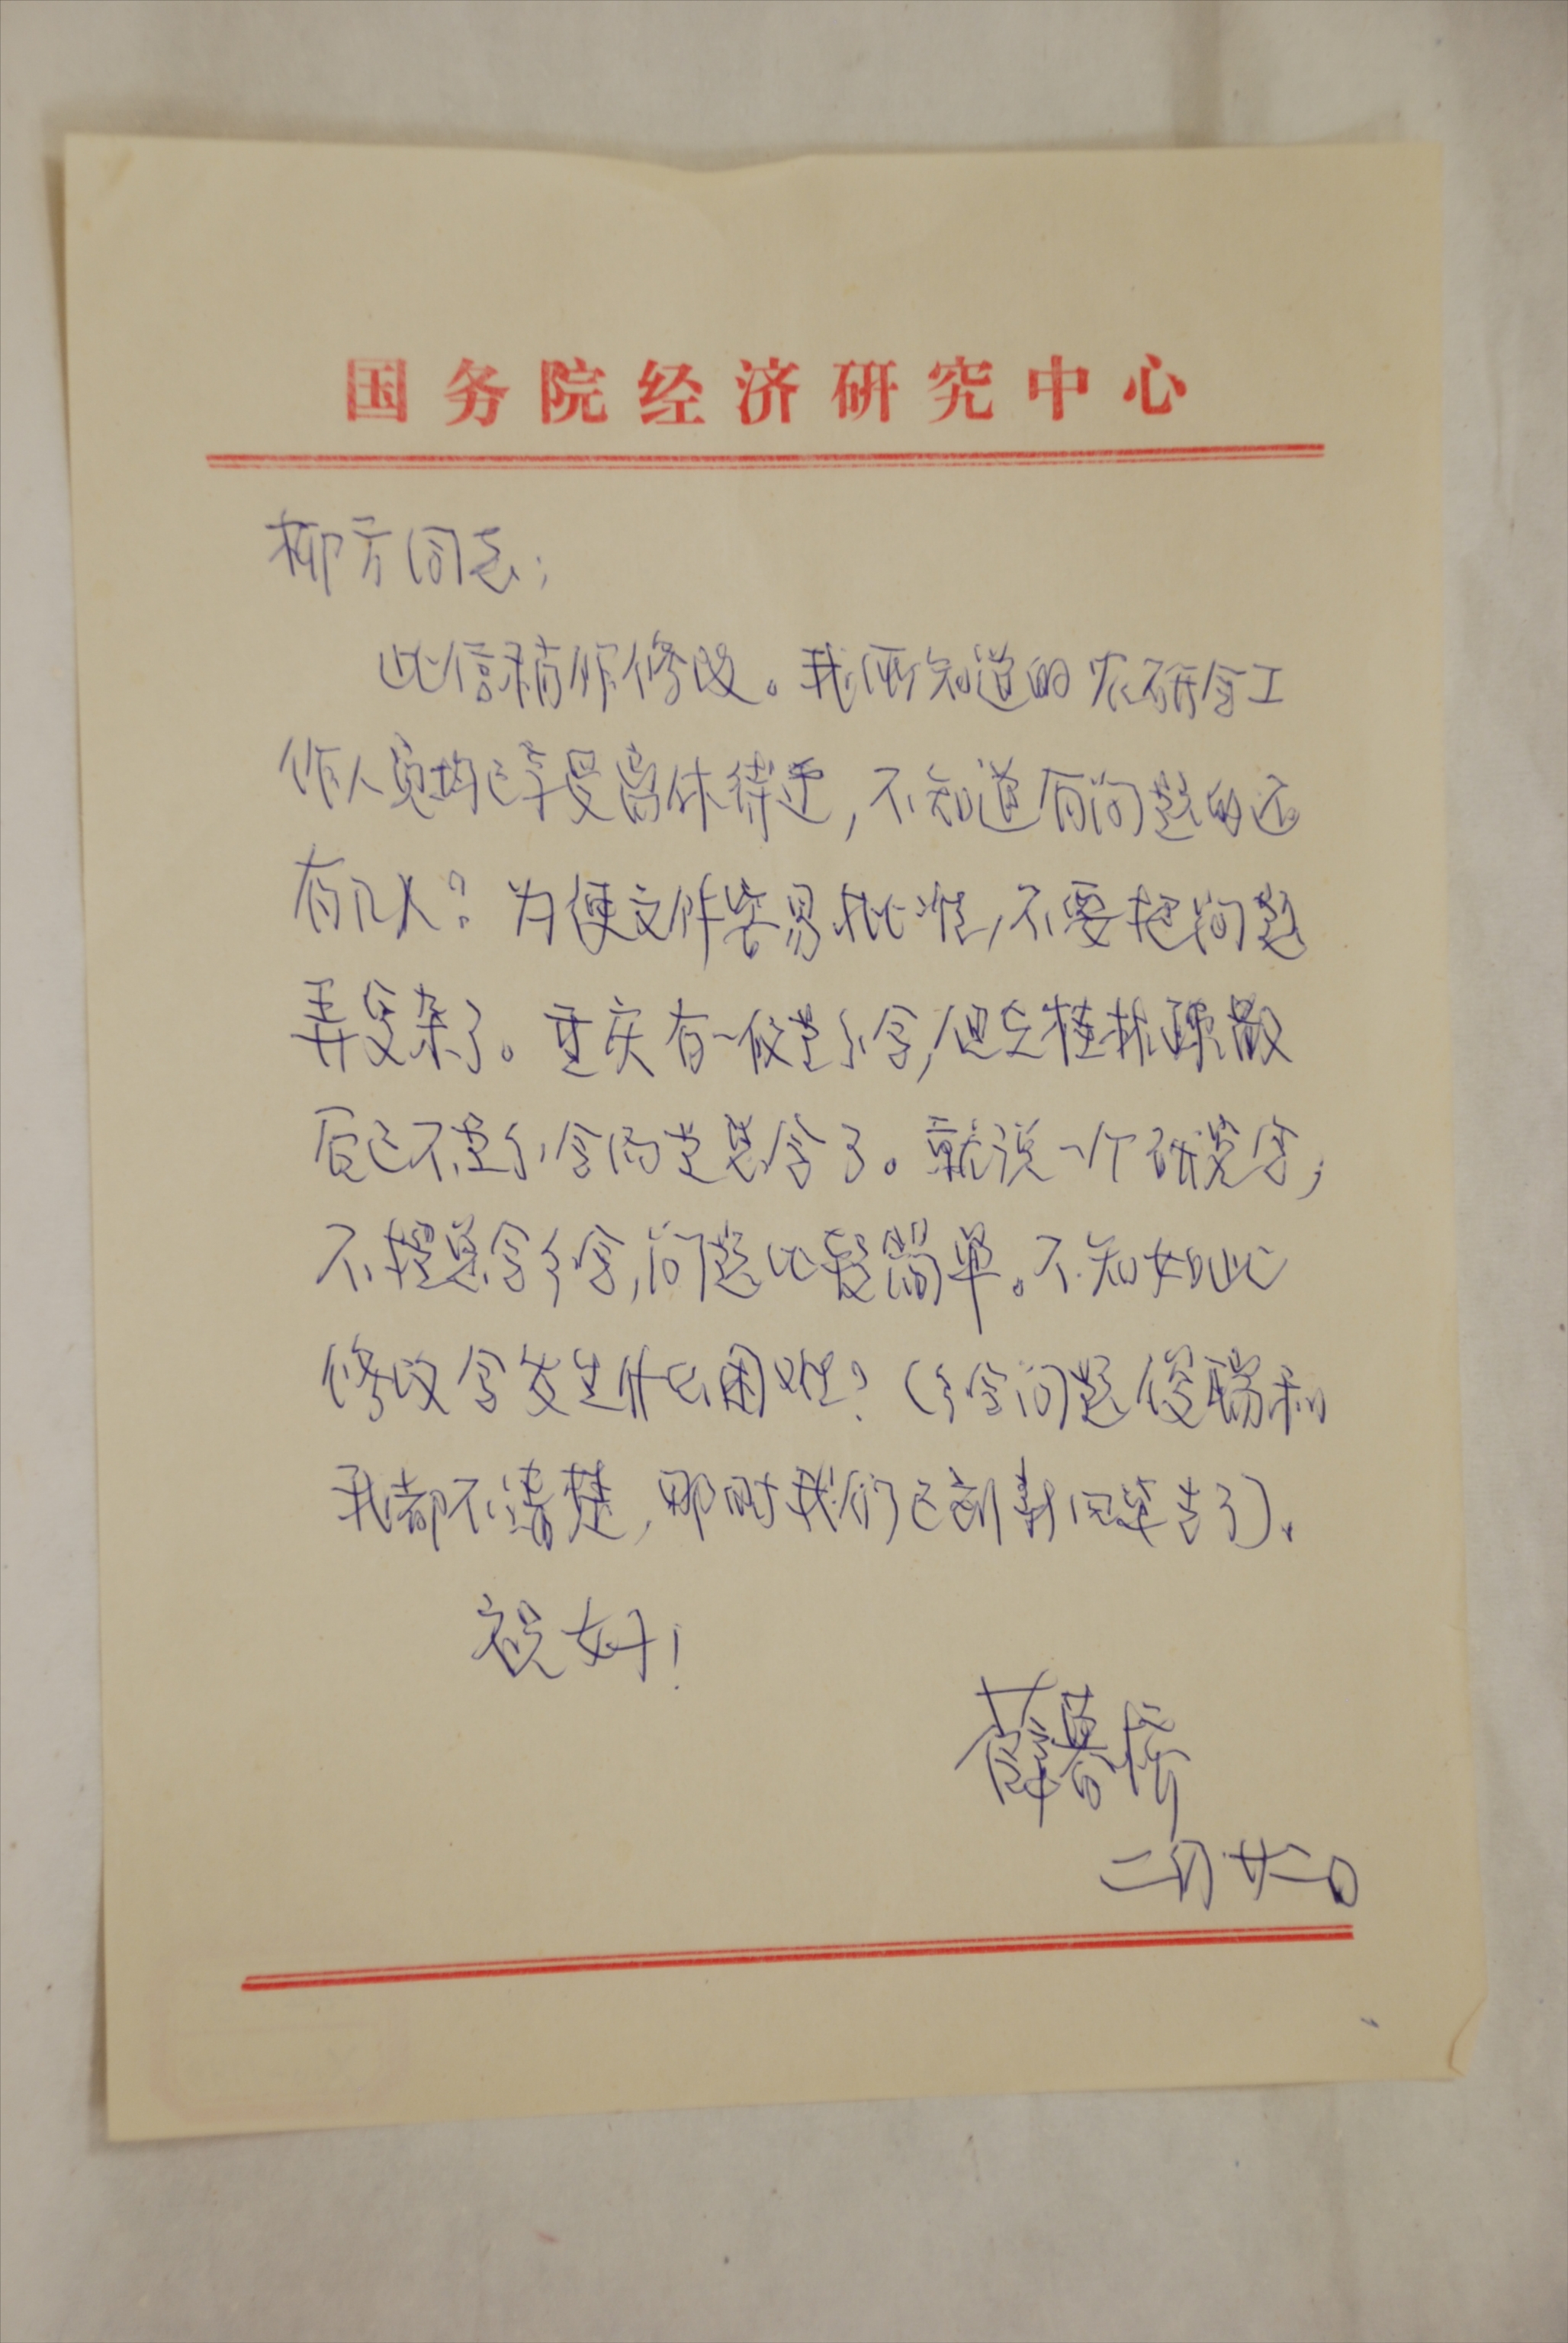 国务院经济研究中心
柳方同志：
此信稍作修改。我所知道的农研会工
作人员均已享受离休待遇，不知道有问题的还
有几人？为使文件容易批准，不要把问题
弄复杂了。重庆有一段是分会，但在桂林疏散
后已不是分会而是总会了。就说一个研究会，
不提总会分会，问题比较简单。不知如此
修改会发生什么困难？（分会问题俊瑞和
我都不清楚，那时我们已到新四军去了）。
祝好！
薛暮桥
二月廿二日